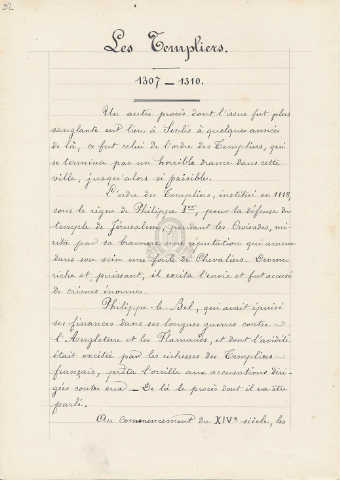 92
Les Templiers.
1307 — 1310.
Un autre procès dont l'issue fut plus
sanglante eut lieu à Senlis à quelques années
de là, ce fut celui de l'ordre des Templiers, qui
se termina par un horrible drame dans cette
ville, jusqu'alors si paisible.
L'ordre des Templiers, institué en 1118,
sous le règne de Philippe 1er, pour la défense du
temple de Jérusalem, pendant les Croisades, mé-
rita par sa bravoure une réputation qui amena
dans son sein une foule de Chevaliers. Devenu
riche et puissant, il excita l'envie et fut accusé
de crimes énormes.
Philippe-le-Bel, qui avait épuisé
ses finances dans ses longues guerres contre
l'Angleterre et les Flamands, et dont l'avidité
était excitée par les richesses des Templiers
français, prêta l'oreille aux accusations diri-
gées contre eux — De là le procès dont il va être
parlé.
Au commencement du XIVe siècle, les